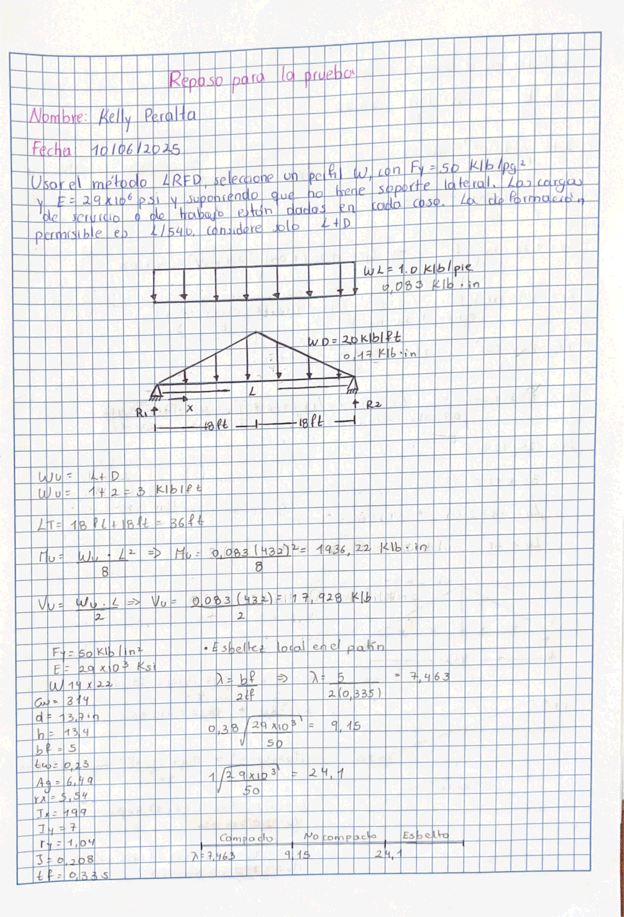 Repaso para la prueba
Nombre: Kelly Peralta
Fecha 10/06/2025
Usar el método LRFD, seleccione un perfil W, con Fy = 50 Klb/pg²
y E = 29x10⁶ psi y suponiendo que no tiene soporte lateral. Las cargas
de servicio o de trabajo están dadas en cada caso. La deformación
permisible es L/540. considere solo L+D
WL = 1.0 Klb/pie
0,083 Klb·in
WD = 20 Klb/ft
0,17 Klb·in
L
R1 x R2
18ft 18ft
WU = L+D
WU = 1+2 = 3 Klb/ft
LT = 18ft+18ft = 36ft
MU = WU · L² / 8 => MU = 0,083(432)² / 8 = 1936,22 Klb·in
VU = WU · L / 2 => VU = 0,083(432) / 2 = 17,928 Klb
Fy = 50 Klb/in²
E = 29x10³ Ksi
W 14x22
Cw = 314
d = 13,7 in
h = 13,4
bf = 5
tw = 0,23
Ag = 6,49
rx = 5,54
Ix = 199
Iy = 7
ry = 1,04
J = 0,208
tf = 0,335
• Esbeltez local en el patín
λ = bf / 2tf => λ = 5 / 2(0,335) = 7,463
0,38 √29x10³ / 50 = 9,15
1 √29x10³ / 50 = 24,1
Compacto No compacto Esbelto
λ=7,463 9,15 24,1